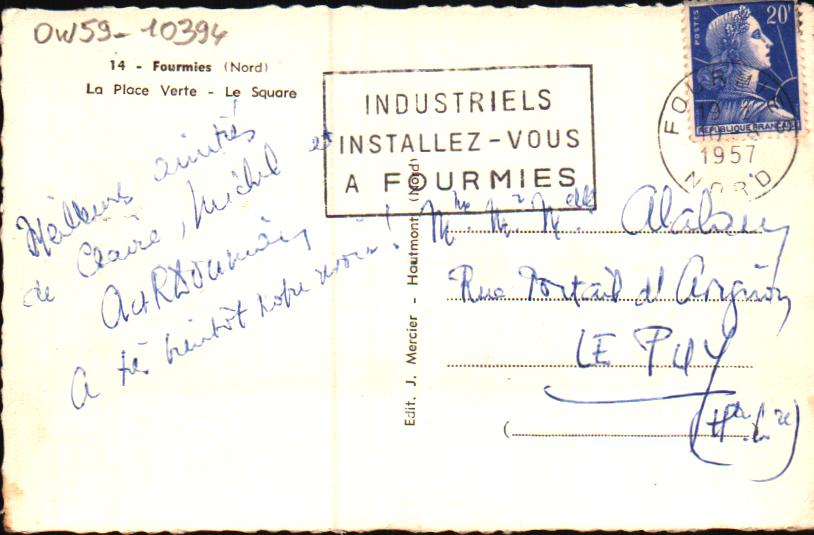 OW59-10394
14 - Fourmies (Nord)
La Place Verte - Le Square
INDUSTRIELS
INSTALLEZ-VOUS
A FOURMIES
POSTES
20F
REPUBLIQUE FRANÇAISE
FOURMIES
1957
NORD
Meilleures amitiés
de Claire, Michel et
A très bientôt votre
Edit. J. Mercier - Hautmont (Nord)
Mme Mr Melle
Rue Portail d'Avignon
LE PUY
(Hte Lre)